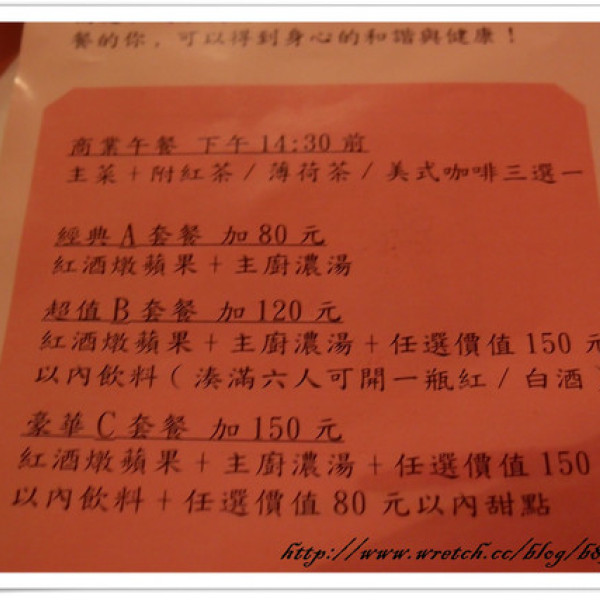 餐的你，可以得到身心的和諧與健康！
商業午餐 下午 14:30 前
主菜 + 附紅茶 / 薄荷茶 / 美式咖啡三選一
經典 A 套餐 加 80 元
紅酒燉蘋果 + 主廚濃湯
超值 B 套餐 加 120 元
紅酒燉蘋果 + 主廚濃湯 + 任選價值 150 元
以內飲料 ( 湊滿六人可開一瓶紅 / 白酒 )
豪華 C 套餐 加 150 元
紅酒燉蘋果 + 主廚濃湯 + 任選價值 150
以內飲料 + 任選價值 80 元以內甜點
http://www.wretch.cc/blog/b8